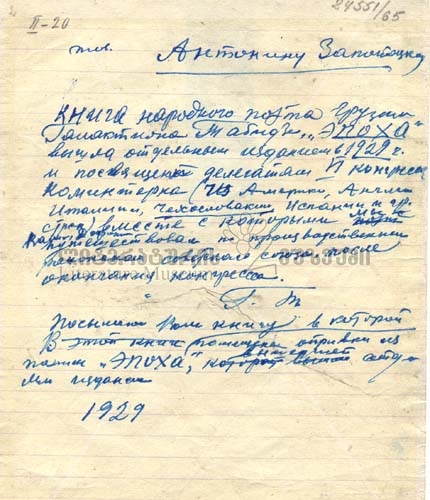 II-20
24551/65
тов. Антонину Запотоцкому
Книга народного поэта Грузии
Галактиона Табидзе, „ЭПОХА"
вышла отдельным изданием в 1929 г.
и посвящена делегатам VI конгресса
Коминтерна (из Америки, Англии
Италии, Чехословакии, Испании и др.
стран) вместе с которыми
путешествовал по производственным
союза после
окончания конгресса.
Г. Т
Посылаю Вам книгу в которой
В этой книге помещены отривки из
поэмы „ЭПОХА",
изданием
1929
ლიტერატურის მუზეუმი
Literature Museum